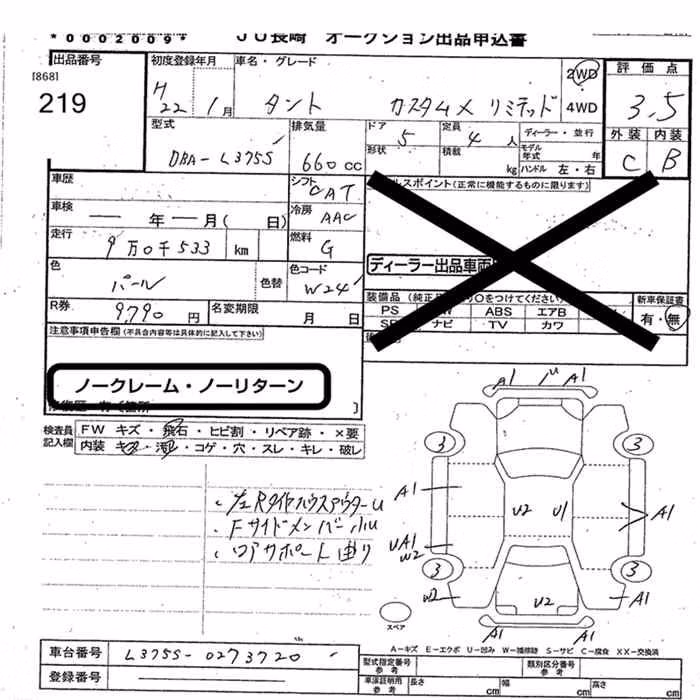 *0002009*
JU長崎 オークション出品申込書
出品番号
[868]
219
初度登録年月
H22 1月
車名・グレード
タント カスタムX リミテッド
2WD
4WD
評価点
3.5
外装 内装
C B
型式
DBA-L375S
排気量
660cc
ドア
5
形状
定員
4人
積載
kg
ディーラー・並行
モデル年式 年
ハンドル 左・右
車歴
シフト
CAT
車検
年 月( 日)
冷房
AAC
走行
9万0千533 km
燃料
G
色
パール
色替
色コード
W24
R券
9,790円
名変期限
月 日
セールスポイント(正常に機能するものに限ります)
ディーラー出品車両
装備品(純正 〇をつけてください)
PS ABS エアB
ナビ TV カワ
新車保証書
有・無
注意事項申告欄(不具合内容等は具体的に記入して下さい)
ノークレーム・ノーリターン
検査員記入欄
FW キズ・飛石・ヒビ割・リペア跡・×要
内装 キズ・汚れ・コゲ・穴・スレ・キレ・破レ
・左Rタイヤハウスアウターu
・Fサイドメンバー小u
・コアサポート曲り
A1 U A1
3 3
A1
U2 U1
A1
UA1
W2
3 3
W2
U2
A1
A1 A1
スペア
A-キズ E-エクボ U-凹み W-補修跡 S-サビ C-腐食 XX-交換済
車台番号
L375S-0273720
登録番号
型式指定番号
参考
類別区分番号
参考
車庫証明用
参考
長さ cm
幅 cm
高さ cm